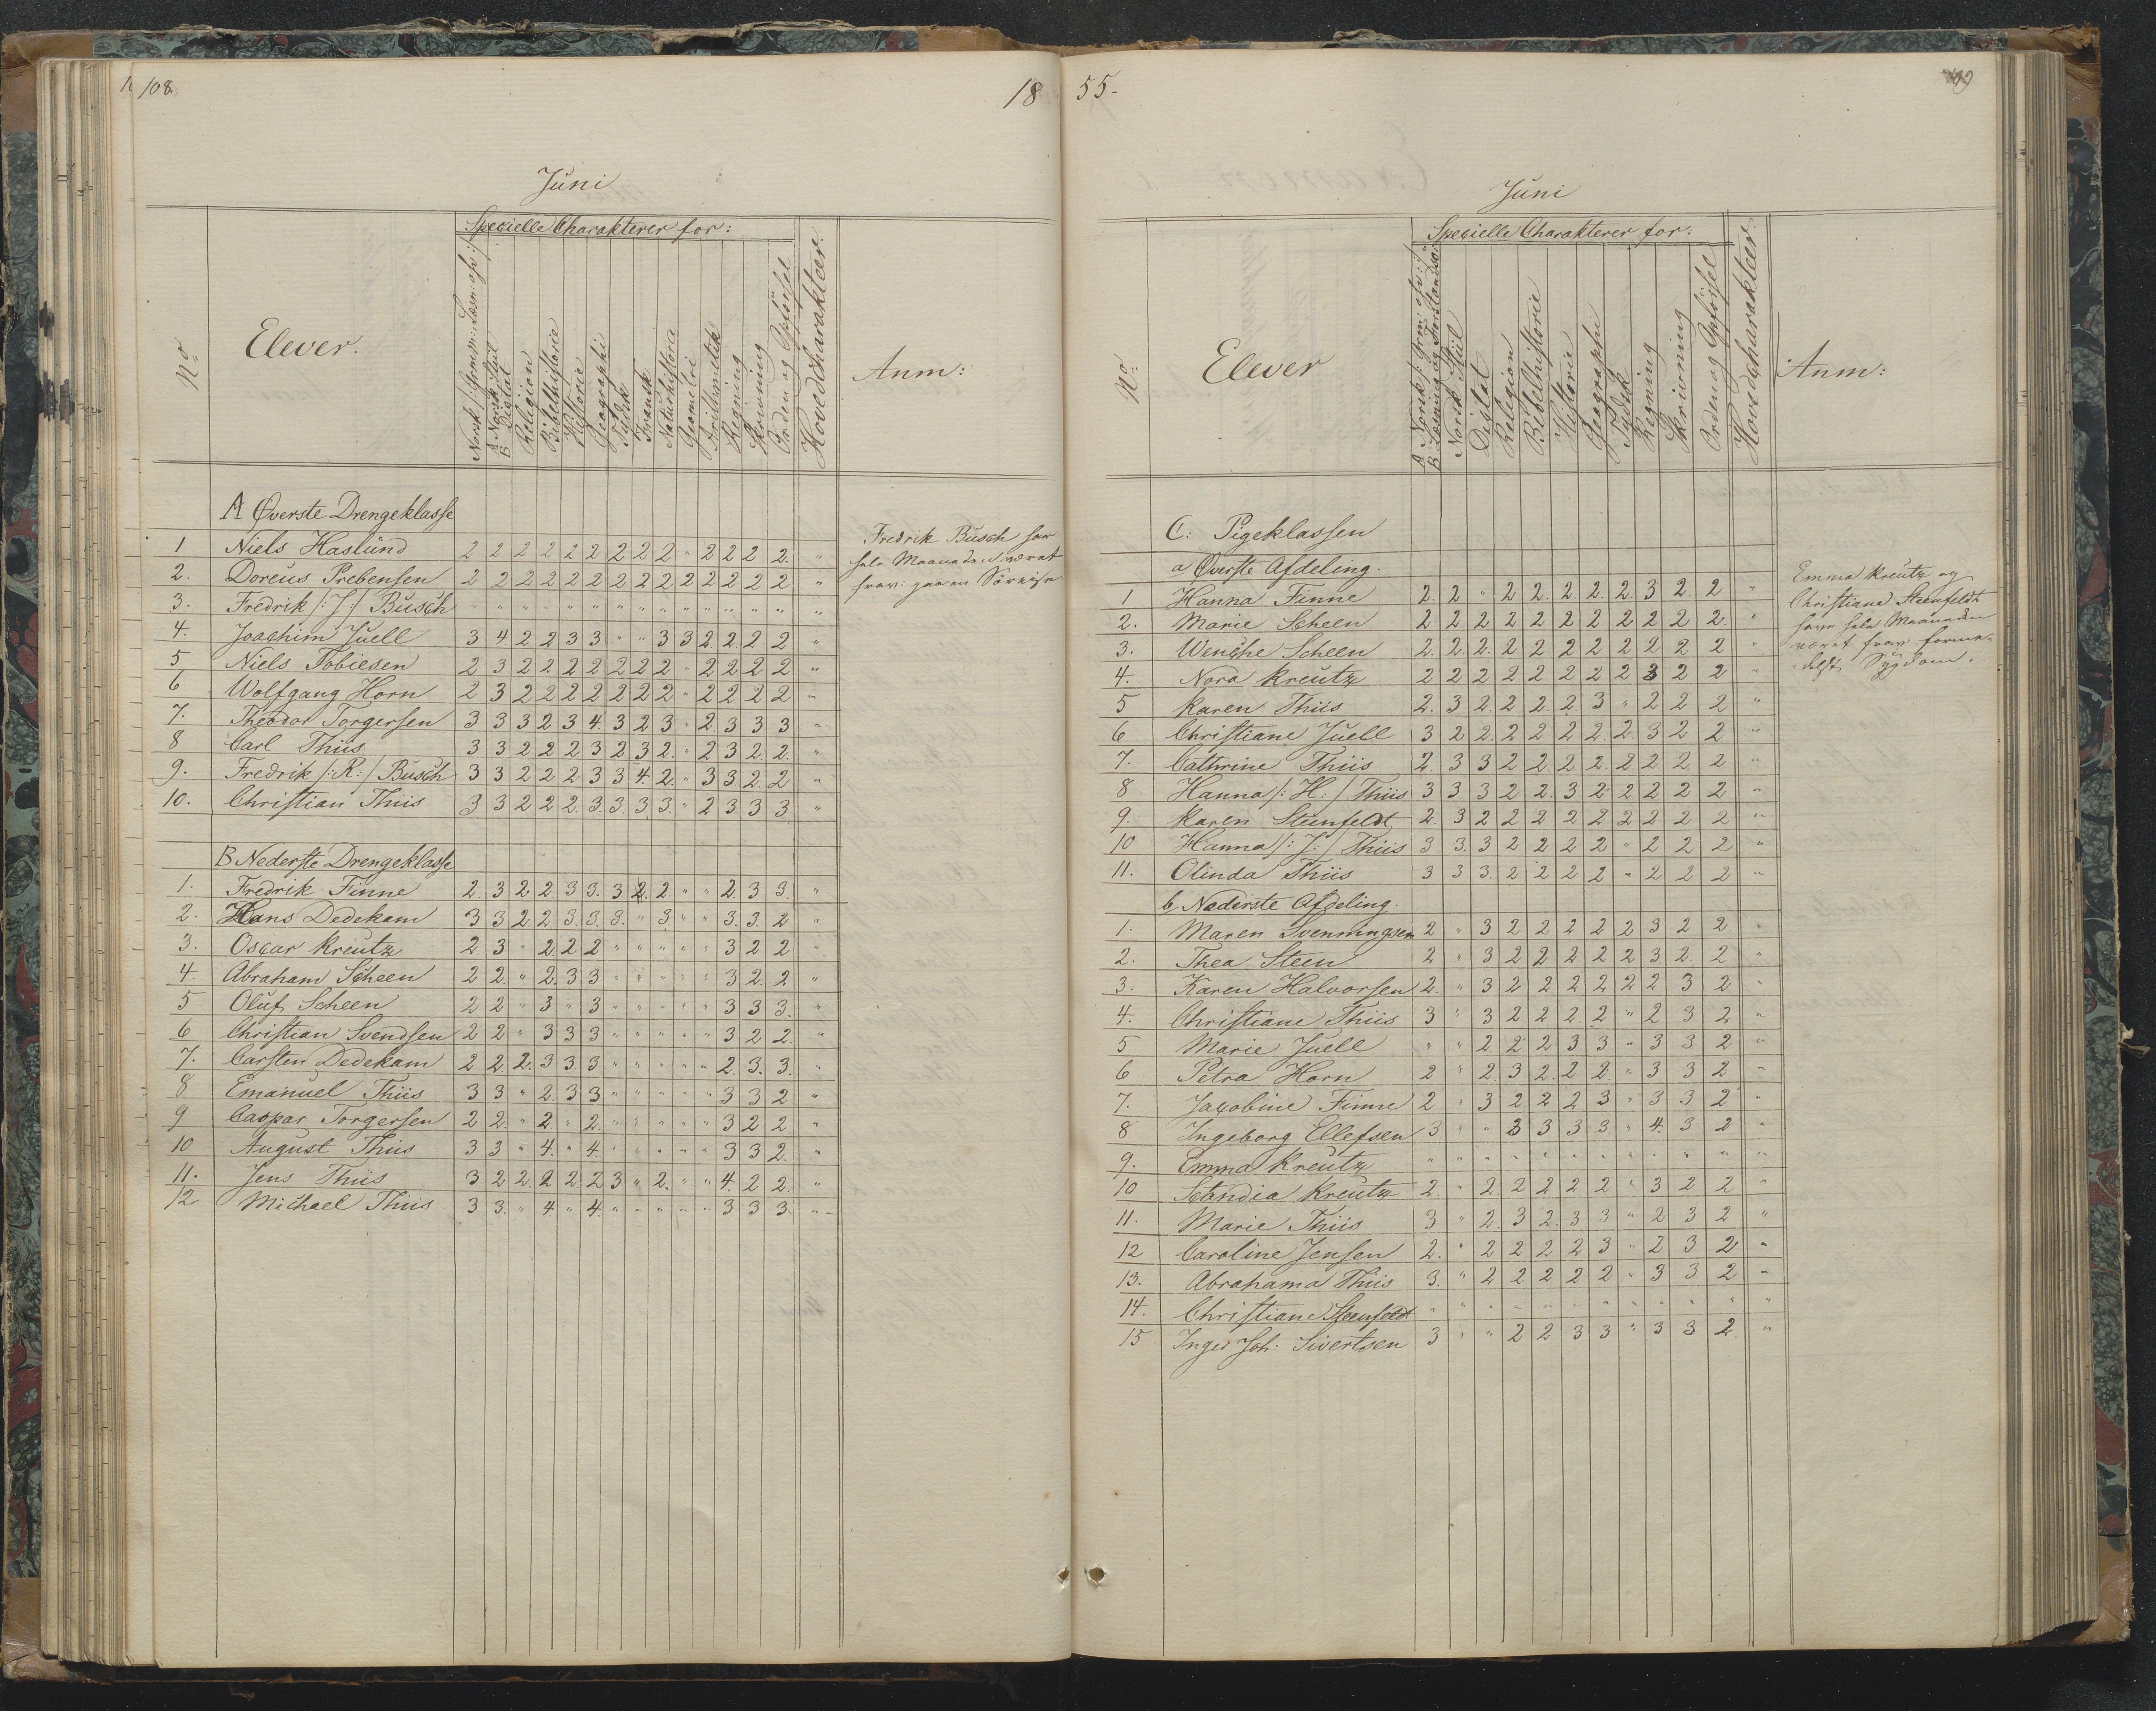 108.
18
Juni
Specielle Charakterer for:
No
Elever.
Norsk /: Gramm: Læsn: ofv:/
A Norsk Stiil
B Digtat
Religion
Bibelhistorie
Historie
Geographi
Tydsk
Fransk
Naturhistorie
Geometri
Arithmetik
Regning
Skrivning
Orden og Opförsel
Hovedcharakteer.
Anm:
A Øverste Drengeklasse
1 Niels Haslund 2 2 2 2 2 2 2 2 2 " 2 2 2 2. "
2. Doreus Prebensen 2 2 2 2 2 2 2 2 2 2 2 2 2 2 "
3. Fredrik /:J:/ Busch " " " " " " " " " " " " " " "
4. Joachim Juell 3 4 2 2 3 3 " " 3 3 2 2 2 2 "
5 Niels Tobiesen 2 3 2 2 2 2 2 2 2 " 2 2 2 2 "
6 Wolfgang Horn 2 3 2 2 2 2 2 2 2 " 2 2 2 2 "
7. Theodor Torgersen 3 3 3 2 3 4. 3 2 3 " 2 3 3 3 "
8 Carl Thiis 3 3 2 2 2 3 2 3 2. " 2 3 2. 2. "
9. Fredrik /:R:/ Busch 3 3 2 2 2 3 3 4. 2. " 3 3 2. 2 "
10. Christian Thiis 3 3 2 2 2. 3. 3. 3. 3. " 2 3 3 3 "
Fredrik Busch har
hele Maaneden været
frav: paa en Söreise
B Nederste Drengeklasse
1. Fredrik Finne 2. 3 2 2 3 3. 3 2. 2 " " 2. 3 3. "
2. Hans Dedekam 3 3 2 2 3. 3. 3. " 3. " " 3. 3. 2 "
3. Oscar Kreutz 2. 3 " 2 2 2 " " " " " 3 2 2 "
4. Abraham Scheen 2 2. " 2. 3 3 " " " " " 3 2. 2 "
5 Oluf Scheen 2 2 " 3 " 3 " " " " " 3 3 3. "
6 Christian Svendsen 2 2 " 3 3 3 " " " " " 3 2 2. "
7. Carsten Dedekam 2 2. 2. 3 3. 3 " " " " " 2. 3. 3. "
8 Emanuel Thiis 3 3 " 2. 3 3 " " " " " 3 3 2 "
9 Caspar Torgersen 2 2. " 2 " 2 " " " " " 3 2 2 "
10 August Thiis 3 3 " 4. " 4. " " " " " 3 3 2. "
11. Jens Thiis 3 2 2. 2 2 2 3 " 2. " " 4. 2 2. "
12 Michael Thiis 3 3. " 4. " 4. " " " " " 3 3 3. "
55.
109
Juni
Specielle Charakterer for:
No
Elever
A Norsk /: Gram: ofv:/
B Læsning og Forstandsøv
Norsk Stiil
Digtat
Religion
Bibelhistorie
Historie
Geographi
Tydsk
Regning
Skrivning
Orden og Opförsel
Hovedcharakteer.
Anm:
C: Pigeklassen
a Øverste Afdeling.
1 Hanna Finne 2. 2 " 2 2. 2. 2. 2. 3 2. 2 "
2. Marie Scheen 2 2 2 2 2 2 2 2 2 2 2. "
3. Wenche Scheen 2. 2. 2. 2 2 2 2 2 2 2 2 "
4. Nora Kreutz 2 2 2 2 2 2 2 2 3 2 2 "
5 Karen Thiis 2. 3 2. 2 2. 2. 3 " 2 2 2 "
6 Christiane Juell 3 2 2. 2 2 2 2. 2. 3 2 2 "
7. Cathrine Thiis 2. 3 3 2 2. 2 2. 2 2 2 2 "
8 Hanna /:H:/ Thiis 3 3 3 2 2. 3 2 2 2 2 2 "
9. Karen Steenfeldt 2. 3 2 2 2 2 2 2 2 2 2 "
10 Hanna /:J:/ Thiis 3 3. 3 2 2 2 2 " 2 2 2 "
11. Olinda Thiis 3 3 3. 2 2 2 2 " 2 2 2 "
Emma Kreutz og
Christiane Steenfeldt
have hele Maaneden
været frav: forme-
delst Sygdom.
b, Nederste Afdeling.
1. Maren Svenningsen 2 " 3 2 2 2 2 2 3 2 2 "
2. Thea Steen 2 " 3 2 2 2 2 2 3 2. 2 "
3. Karen Halvorsen 2. " 3 2 2 2 2 2 2 3 2 "
4. Christiane Thiis 3 " 3 2 2 2 2 " 2 3 2 "
5 Marie Juell " " 2. 2 2 3 3 " 3 3 2 "
6 Petra Horn 2 " 2. 3 2. 2 2. " 3 3 2 "
7. Jacobine Finne 2 " 3 2 2 2 3 " 3 3 2 "
8 Ingeborg Ellefsen 3 " " 3 3 3 3. " 4. 3 2 "
9. Emma Kreutz " " " " " " " " " " " "
10 Standia Kreutz 2. " 2. 2 2 2 2 " 3 2 2 "
11. Marie Thiis 3 " 2. 3 2. 3 3 " 2 3 2 "
12 Caroline Jensen 2. " 2 2 2 2 3 " 2 3 2 "
13. Abrahama Thiis 3. " 2 2 2 2 2 " 3 3 2 "
14. Christiane Steenfeldt " " " " " " " " " " " "
15 Inger Joh: Sivertsen 3 " " 2 2 3 3 " 3 3 2. "